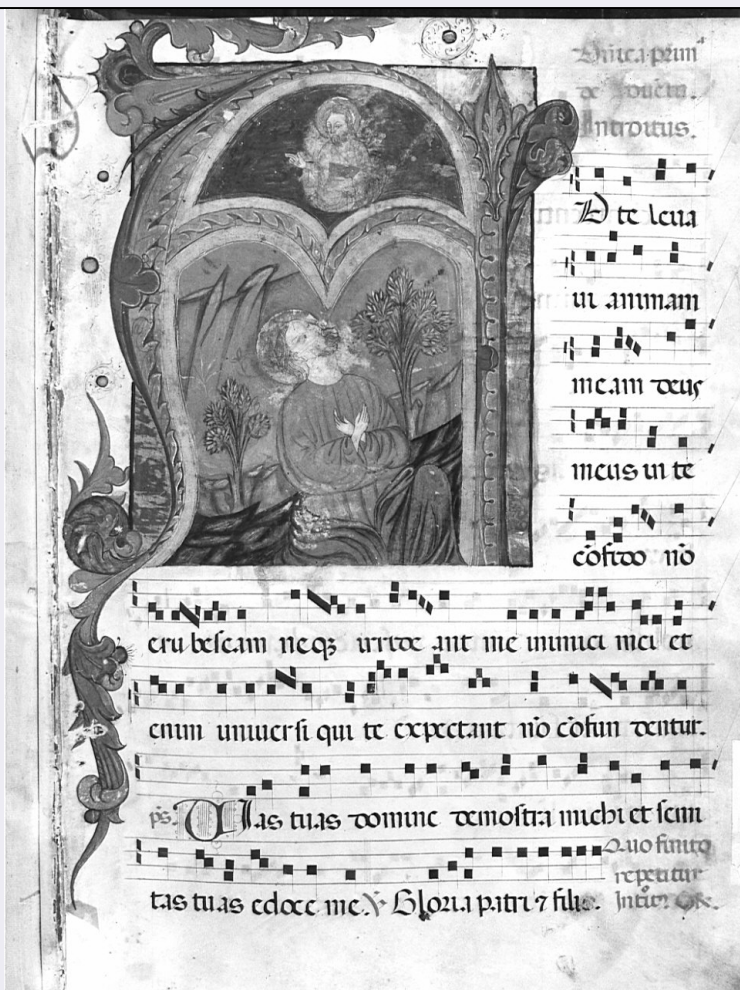 Dñica prima
de aduetu.
Introitus.
D te leua
ui animam
meam deus
meus in te
cōfido nō
erubescam neqȝ irride ant me inimici mei et
enim uniuersi qui te expectant nō cōfun dentur.
ps. Vias tuas domine demostra michi et semi
tas tuas edoce me. ℣ Gloria patri ⁊ filio.
Quo finito
repetitur